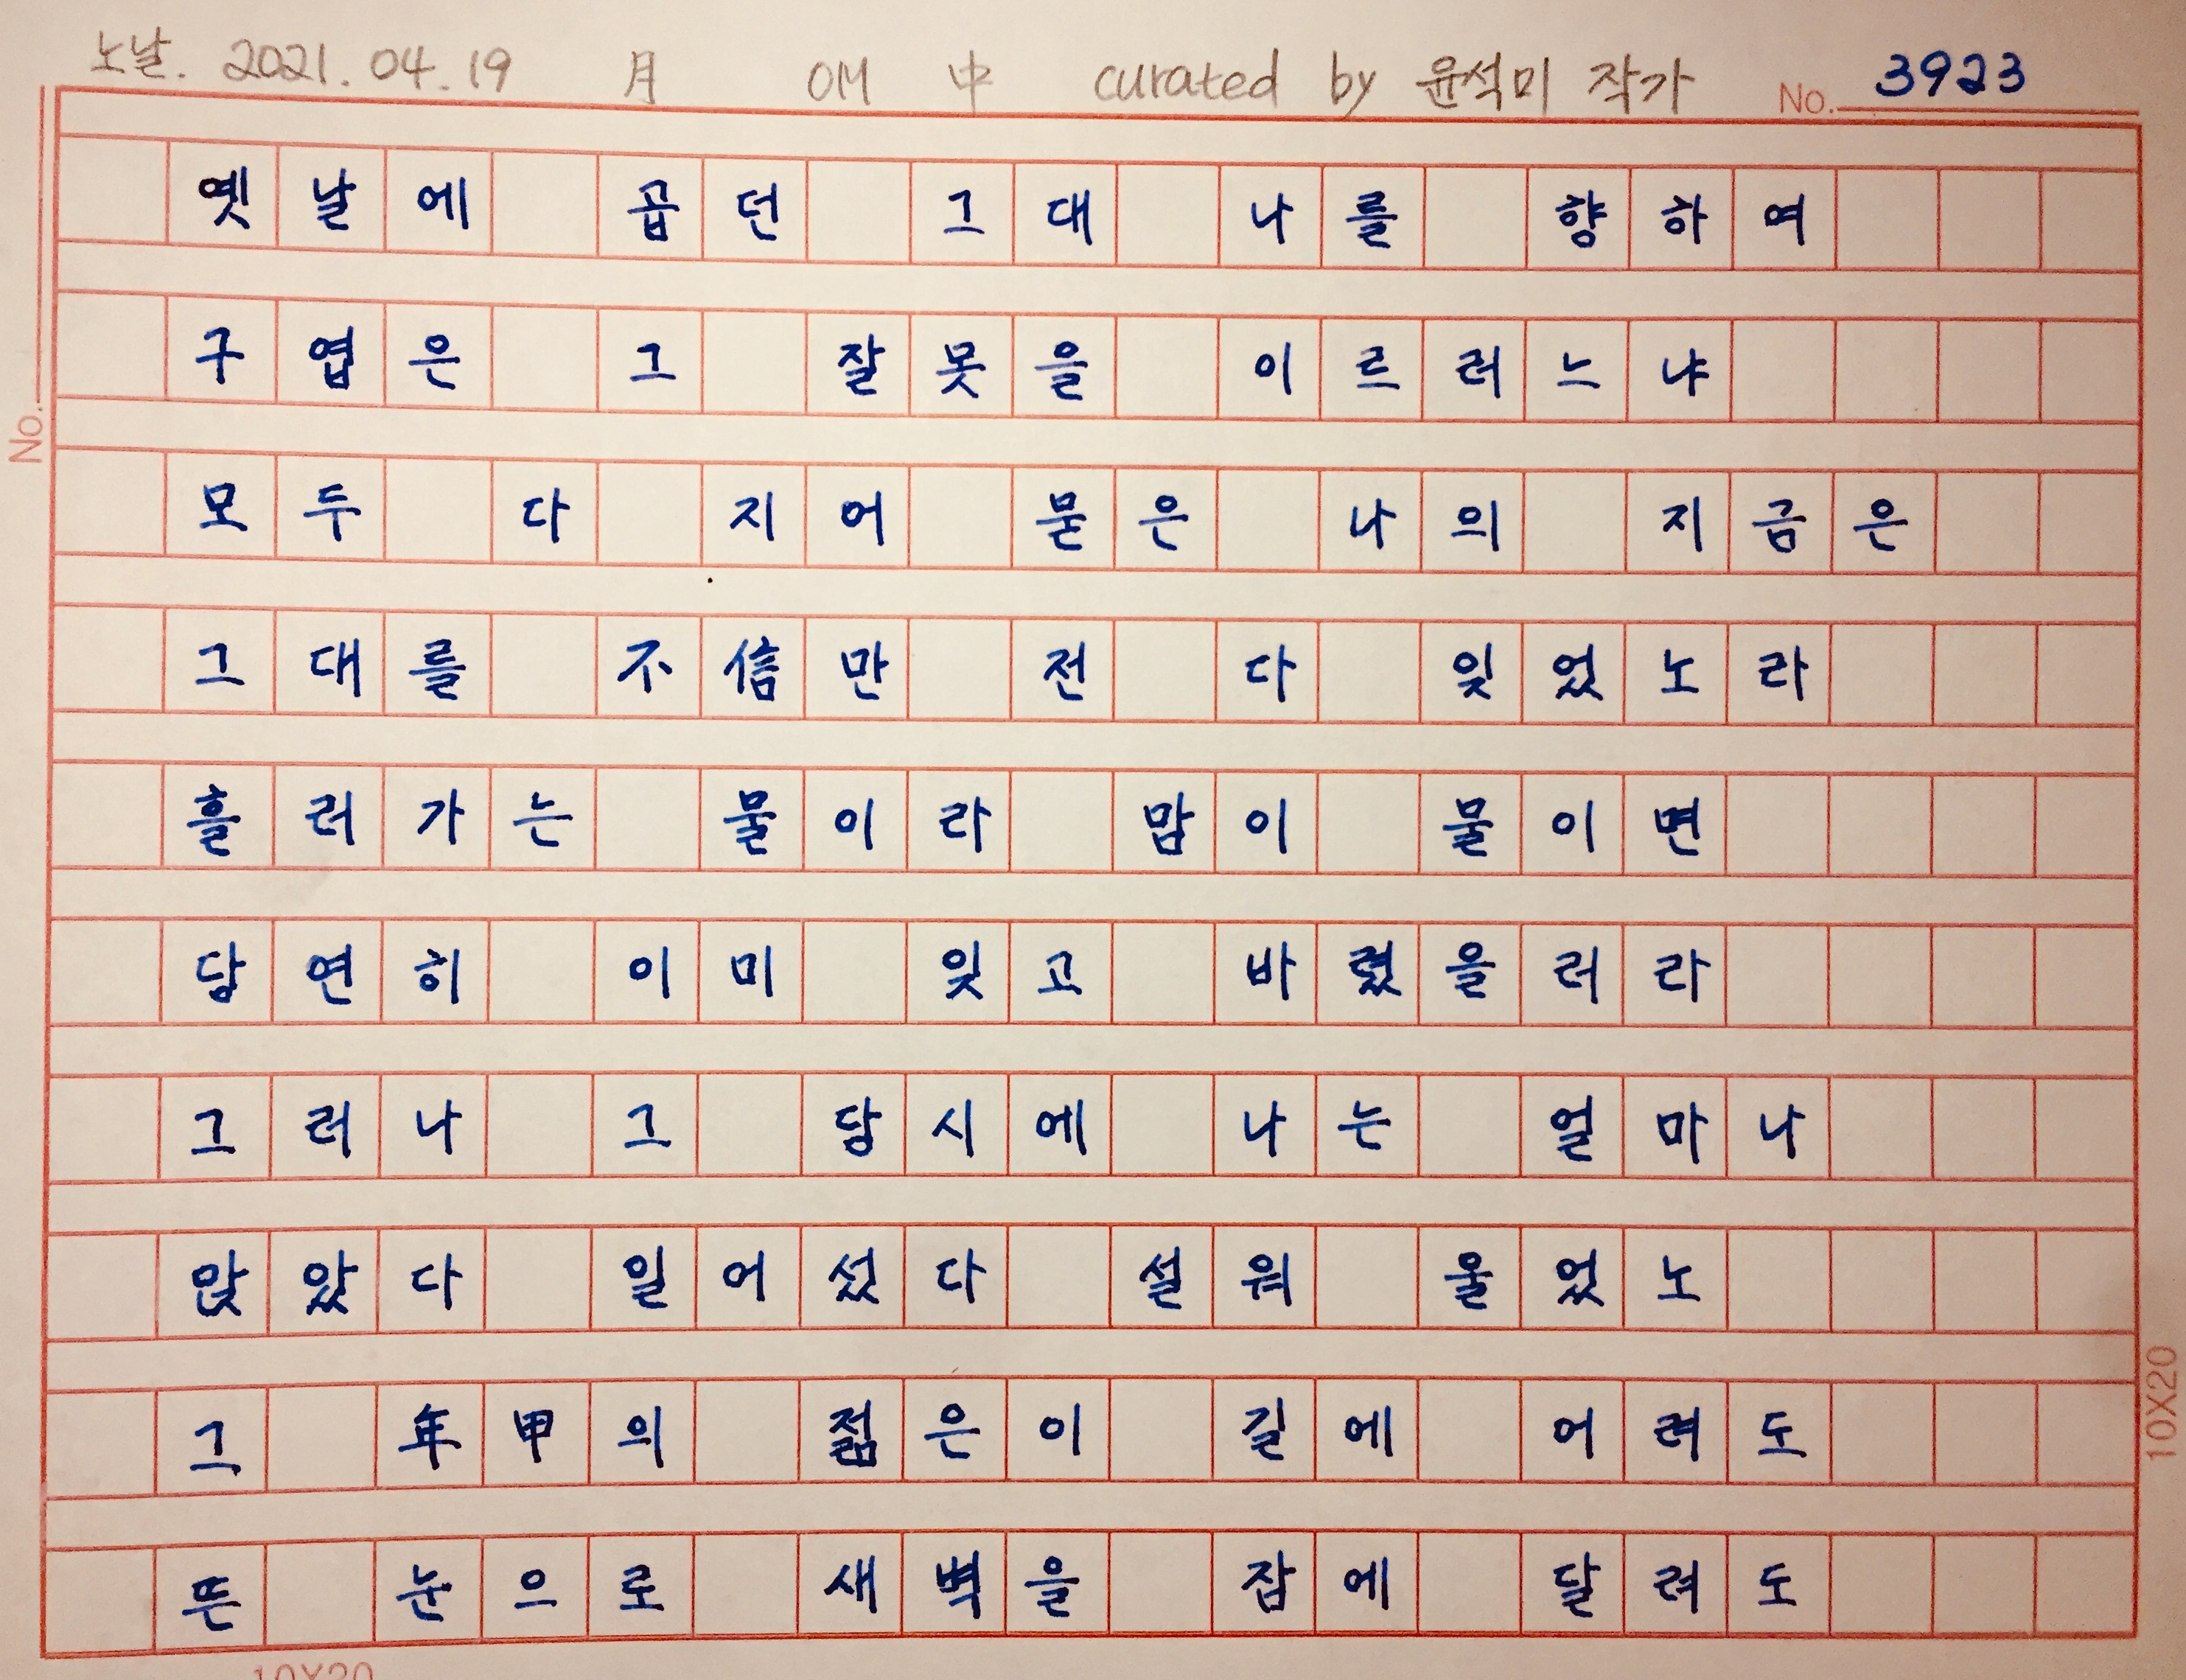 노날. 2021.04.19 月 OM 中 curated by 윤석미 작가 No. 3923
옛날에 곱던 그대 나를 향하여
구엽은 그 잘못을 이르러느냐
모두 다 지어 묻은 나의 지금은
그대를 不信만 전 다 잊었노라
흘러가는 물이라 맘이 물이면
당연히 이미 잊고 바렸을러라
그러나 그 당시에 나는 얼마나
앉았다 일어섰다 설워 울었노
그 年甲의 젊은이 길에 어려도
뜬 눈으로 새벽을 잠에 달려도
No.
10X20
10X20